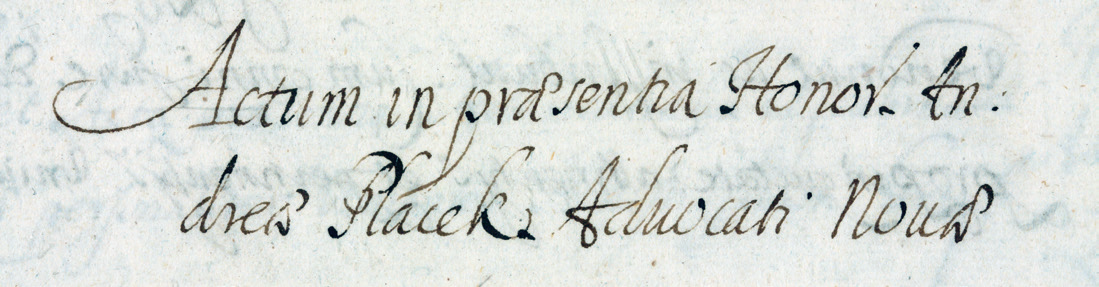 Actum in præsentia Honor. An:
dreæ Placek Advocati Novæ